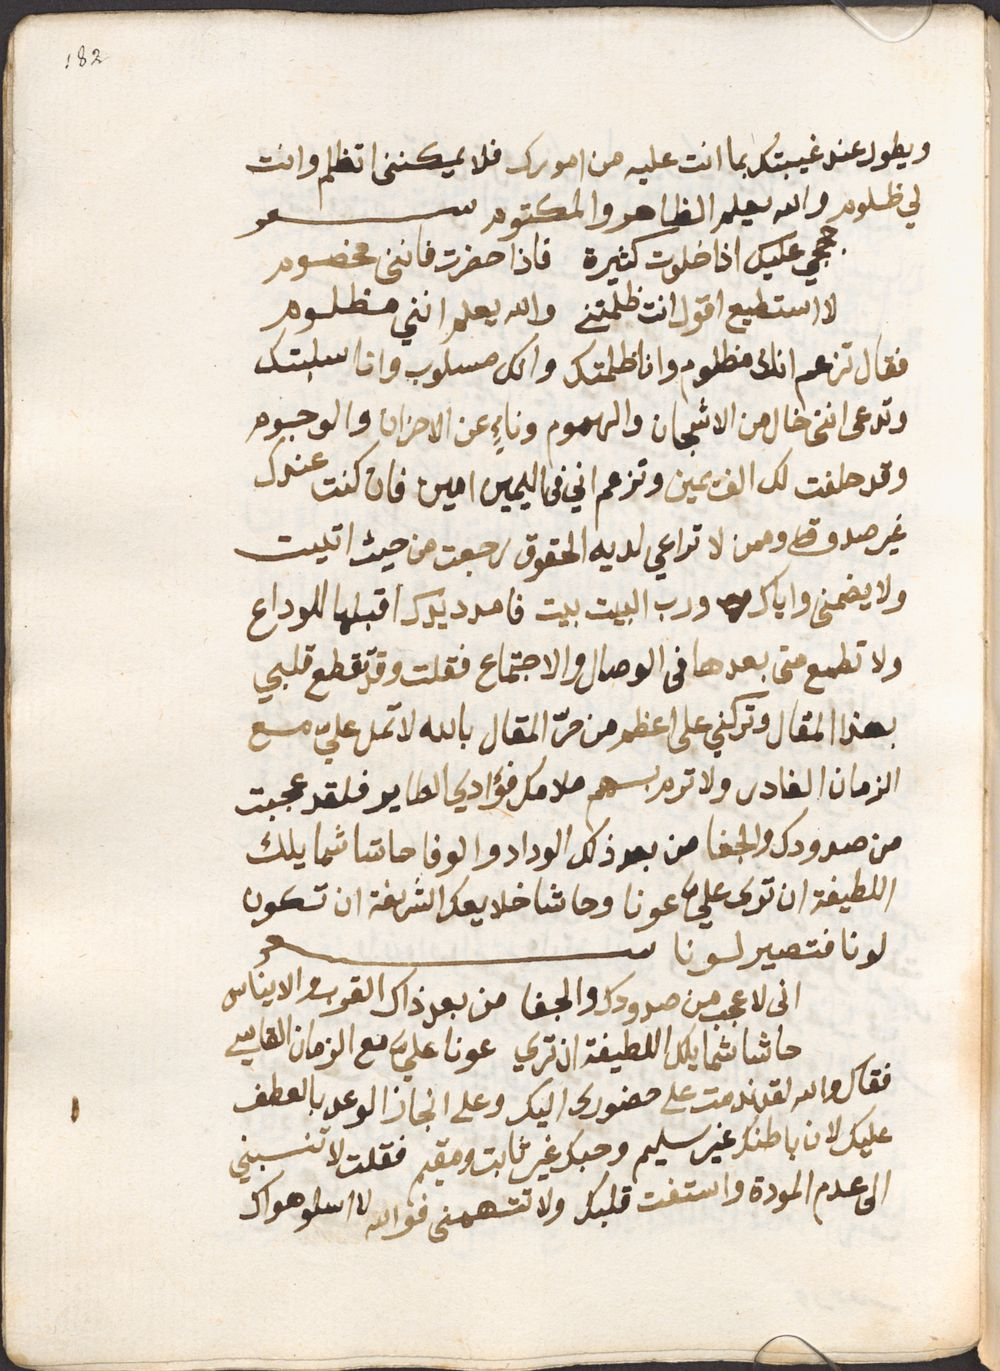 182
ويطول عند غيبتك بما انت عليه من امورك فلا يمكنني اتظلم وانت
لي ظلوم والله يعلم الظاهر والمكتوم شعر
حججي عليك اذا خلوت كثيرة فاذا حضرت فانني مخصوم
لا استطيع اقول انت ظلمتني والله يعلم انني مظلوم
فقال تزعم انك مظلوم وانا ظلمتك وانك مسلوب وانا سلبتك
وتدعي انني خال من الاشجان والهموم وناءٍ عن الاحزان والوجوم
وقد حلفت لك الف يمين وتزعم اني في اليمين امين فان كنت عندك
غير صدوق وممن لا تراعي لديه الحقوق رجعت من حيث اتيت
ولا يضمني واياك ورب البيت بيت فامدد يدك اقبلها للوداع
ولا تطمع مني بعدها في الوصال والاجتماع فقلت وقد تقطع قلبي
بهذا المقال وتركني على اعظم من حرّ المقال بالله لا تمل عليّ مع
الزمان الغادر ولا ترم بسهم ملامك فؤادي الطاير فلقد عجبت
من صدودك والجفا من بعد ذلك الوداد والوفا حاشا شمايلك
اللطيفة ان ترى عليّ عونا وحاشا خلايقك الشريفة ان تكون
لونا فتصير لونا شعر
اني لاعجب من صدودك والجفا من بعد ذاك القرب والايناس
حاشا شمايلك اللطيفة ان تري عونا عليّ مع الزمان القاسي
فقال والله لقد ندمت على حضوري اليك وعلى انجاز الوعد بالعطف
عليك لان باطنك غير سليم وحبك غير ثابت ومقيم فقلت لا تنسبني
الى عدم المودة واستفت قلبك ولا تتهمني فوالله لا اسلو هواك